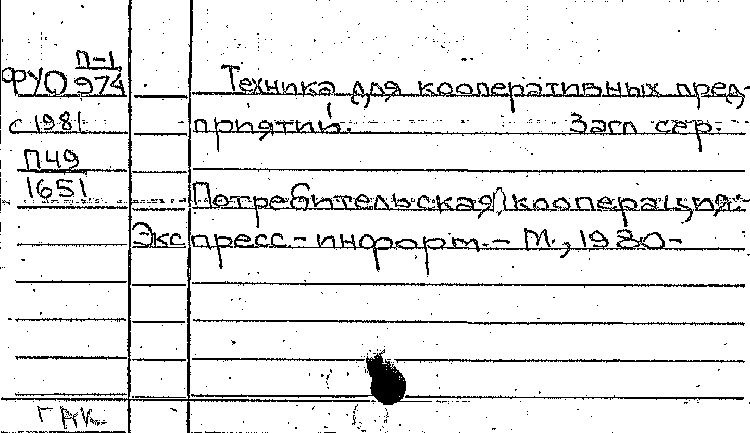 П-1
ФУО 974
Техника для кооперативных пред-
с 1981
приятий.
Загл сер.
П49
1651
Потребительская кооперация:
Экспресс-информ.- М., 1980-
ГАК